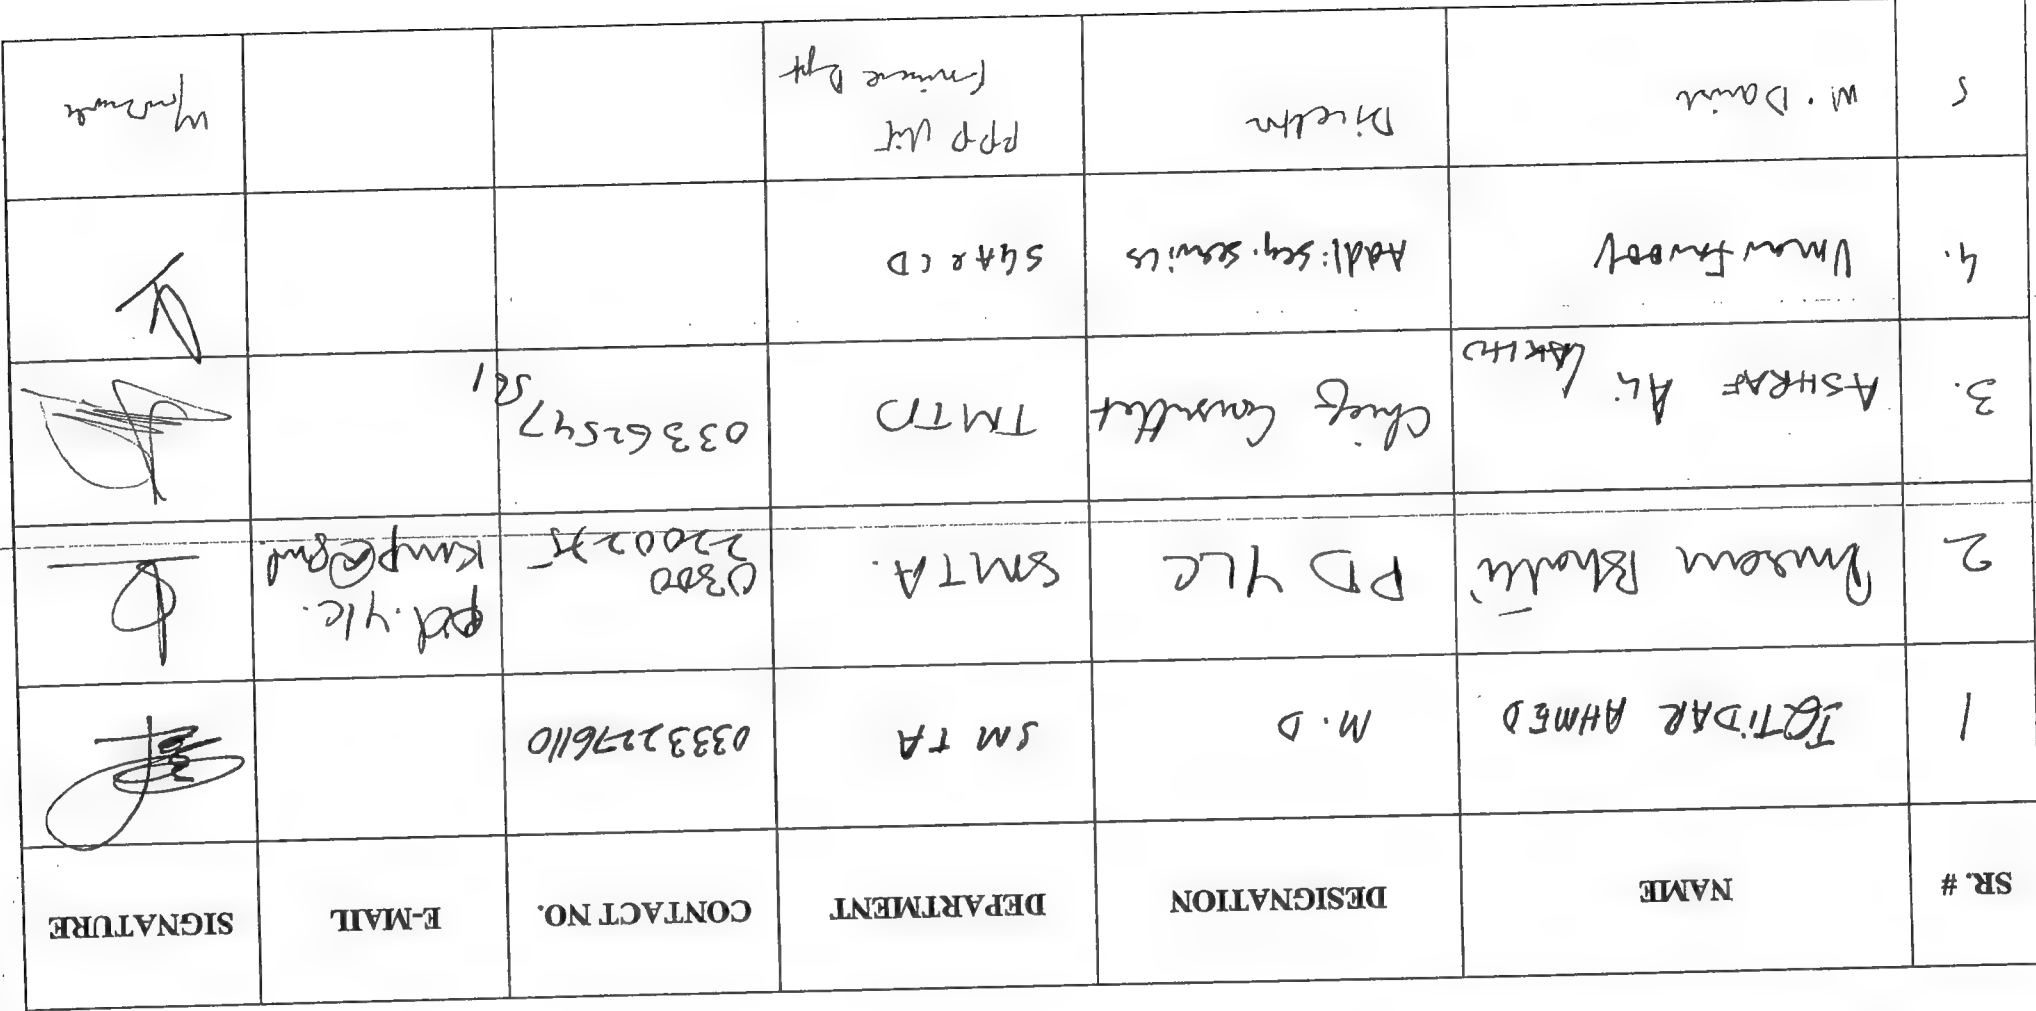 SR. # NAME DESIGNATION DEPARTMENT CONTACT NO. E-MAIL SIGNATURE
1 IQTIDAR AHMED M.D SMTA 03332276110
2 PD YLC SMTA. 0300
2200275 pd.ylc.
3. ASHRAF ALI Chief TMTD 03362547
581
4. Umar Farooq Addl: Secy. Services SGA & CD
5 M. Danish Director PPP Unit
Finance Dept